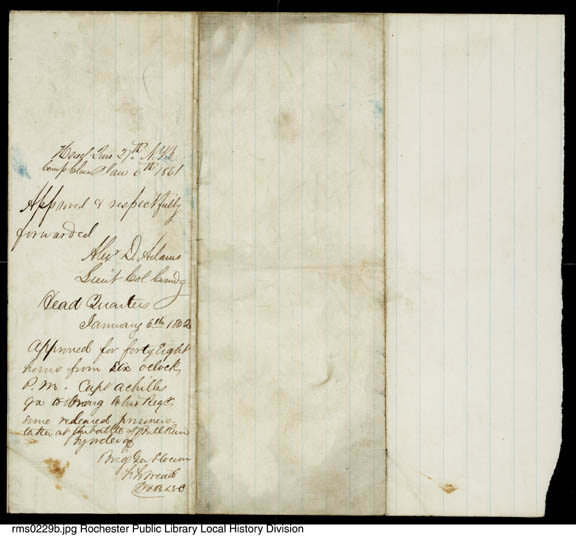 Head Qurs 27th N.Y.V.
Camp Jan 6th 1861
Approved & respectfully
forwarded
Alexr D. Adams
Lieut Col Comdg
Head Quarters
January 6th 1862
Approved for forty Eight
hours from Six oclock
P.M. Capt Achilles
go to bring to his Regt.
some released prisoners
taken at the battle of Bull Run
By order of
Brig Gen Slocum
rms0229b.jpg Rochester Public Library Local History Division